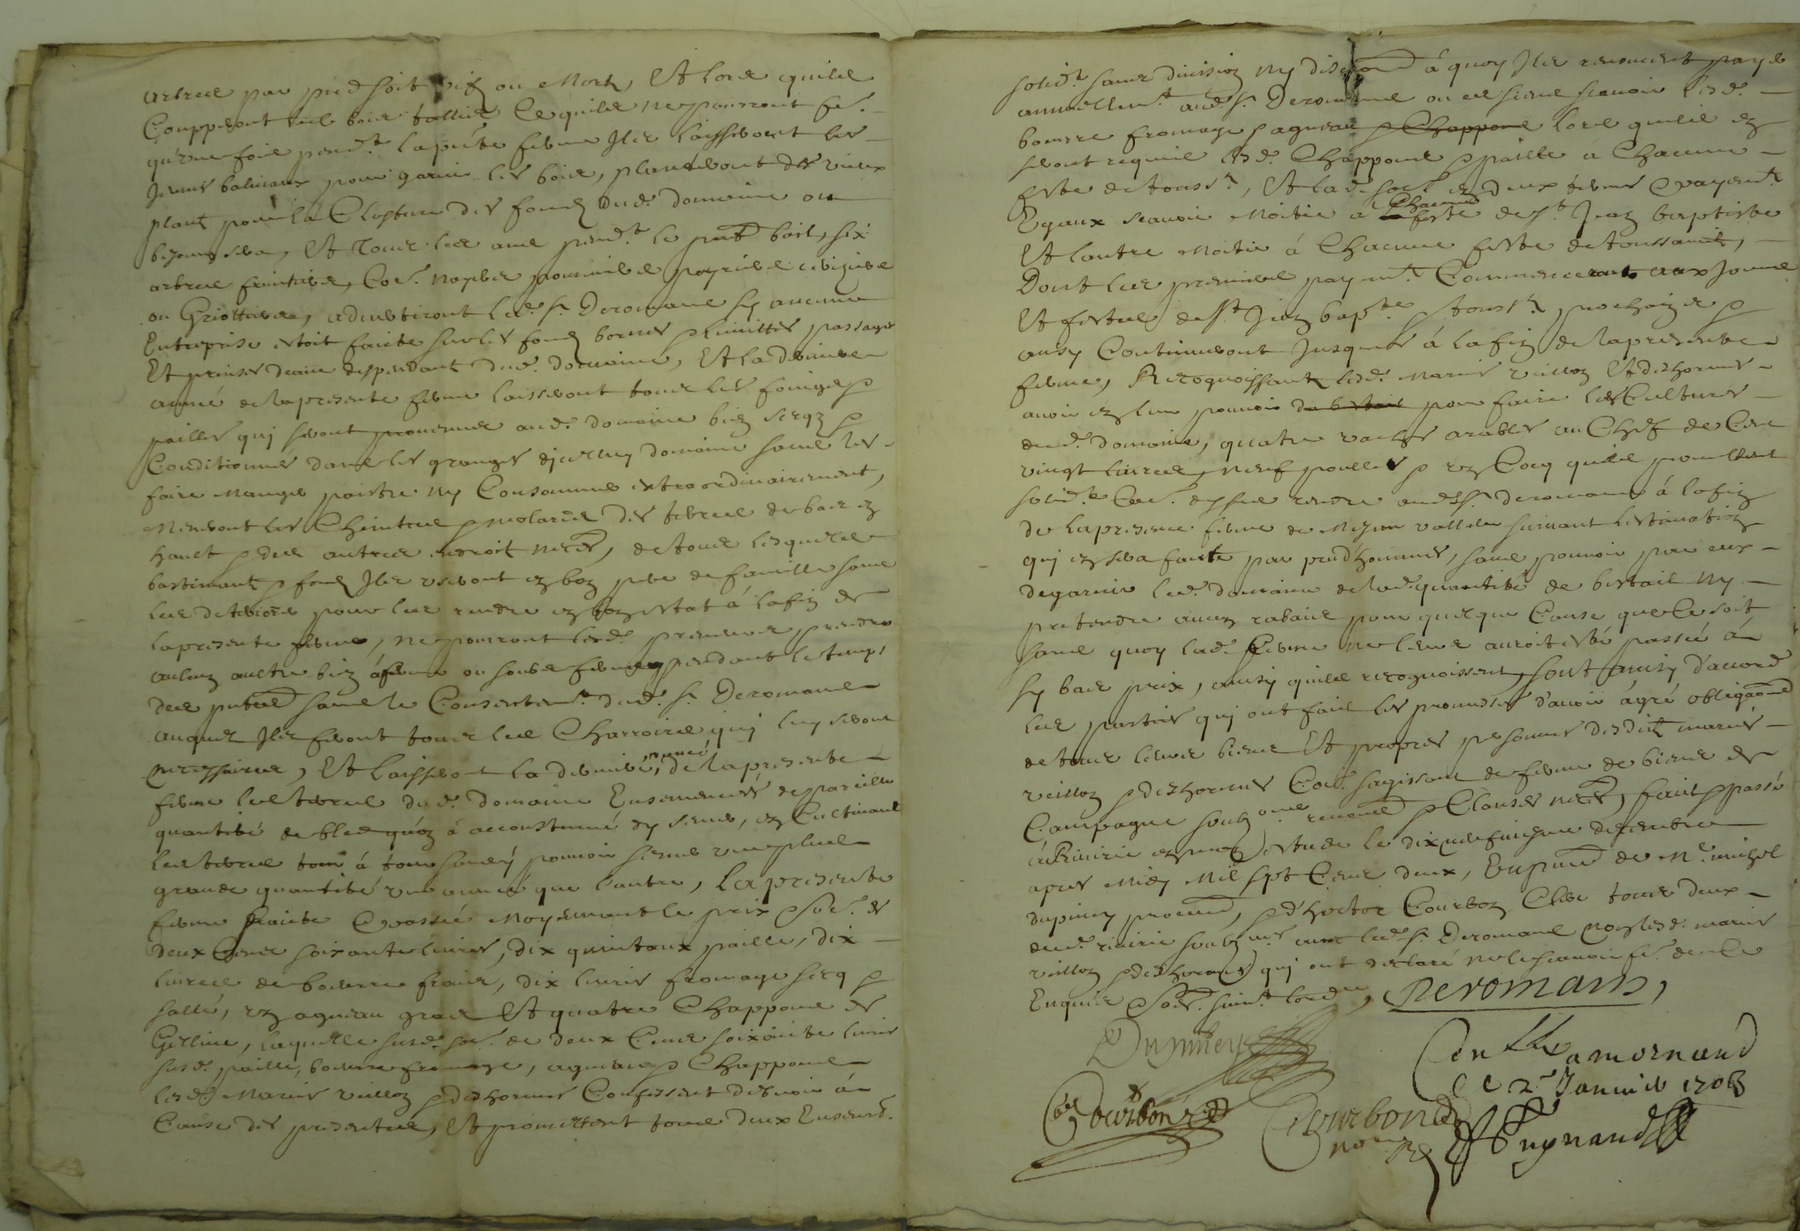 arbres par pied soit vif ou mort, Et lors quils
Coupperont les bois tallis Ce quils ne pourront fe.
qu'une fois pend.t la pnte ferme Ils laisseront les
Jeunes baliveaux pour garnir les bois, planteront des vieux
plant pour la Closture des fondz dud. domaine ou
besoing sera, Et Tous les ans pend.t le pnt bail, six
arbres fruitiers, Co.e noyers pommiers poyriers cerisiers
ou Griottiers, advertiront led. s.r Deromans sy aucune
Entreprise estoit faite sur les fondz bornes & limittes passages
Et prinses deaux despendant dud. domaine, Et la derniere
année de la presente ferme laisseront tous les foings &
pailles qui seront provenus aud. domaine bien serqz &
Conditionnés dans les granges dicelluy domaine sans les
faire manger paistre ny Consommer extraordinairement,
Meneront les Cheintres & molards des terres de bas en
hault & des autres endroit necess.res, de tous lesquels
bastimants & fondz Ils useront en bon pere de famille sans
les deteriorer pour les rendre en bon estat à la fin de
la presente ferme, ne pourront lesd. preneurs prendre
aulcun aultre bien à ferme ou soubs ferme pendant le temps
des pntes sans le Consentem.t dud. s.r Deromans
auquel Ils feront tous les Charrois qui luy seront
necessaires, Et laisseront la derniere année de la presente
ferme les terres dud. domaine Ensemencés de pareille
quantité de bled qu'on à accoustumé dy semer, en Cultivant
les terres tour à tour sans y pouvoir semer une plus
grande quantité une année que lautre, La presente
ferme faite & passée Moyennant le prix & so.e de
deux Cens soixante livres, dix quintaux paille, dix
livres de beurre frais, dix livres fromage secq &
sallé, un agneau gras Et quatre Chappons de
Geline, laquelle susd. so.e de deux Cens soixante livres
susd. paille, beurre fromage, agneau & Chappons
lesd. Mariés veillon & deshormes Confessent debvoir à
Cause des presentes, Et promettent tous deux Ensemb.
solid.t sans division ny disc.on à quoy Ils renoncent payer
annuellem.t aud. s.r Deromans ou es siens scavoir lesd.
beurre fromage & agneau & Chappons lors quils en
seront requis lesd. Chappons & paille à Chacune
feste de touss.ts, Et lad. so.e en deux termes & payem.ts
Egaux scavoir Moitié à Chacune feste de s.t Jean baptiste
Et lautre Moitié à Chacune feste de toussaint,
Dont les premiers paym.ts Commenceront aux Jours
Et festes de s.t Jean bap.te & touss.ts prochaines &
ainsy Continueront Jusques à la fin de la presente
ferme, Recognoissants lesd. Mariés veillon Et deshormes
avoir en leur pouvoir du bestail pour faire les Cultures
dud. domaine, quatre vaches arables au Chef de Cent
vingt livres, neuf poulles & un Cocq quils promettent
solid.t Co.e dessus rendre aud. s.r deromans à la fin
de la presente ferme de mesme valleur suivant lestimation
qui en sera faite par preudhommes, sans pouvoir par eux
degarnir led. domaine de lad. quantité de bestail ny
pretendre aucun rabais pour quelque Cause que Ce soit
sans quoy lad. ferme ne leur auroit esté passée à
sy bas prix, ainsy quils recognoissent, sont ainsy d'accord
les parties qui ont fait les promesses d'avoir àgré obligaons
de tous leurs biens Et propres personnes desdit mariés
veillon & deshormes Co.e sagissant de ferme de biens de
Campagne soubz.ons renon.s & Clauses necess.res, fait & passé
à Riuirie en mon estude le dixneufuiesme decembre
apres Midy Mil sept Cens deux, En pnce de M.e michel
dupiney procureur, & d'hector Courbon Clerc tous deux
dud. riuirie soubz.nés avec led. s.r Deromans Non lesd. mariés
veillon & deshormes qui ont declaré ne le scavoir fe. de ce
Enquis & so.és suiv.t lord.ce, Deromans,
Dupiney
Con.lle a mornand
le 2.e Januier 1703
Courbon
Courbon
no.re R.
Puynand